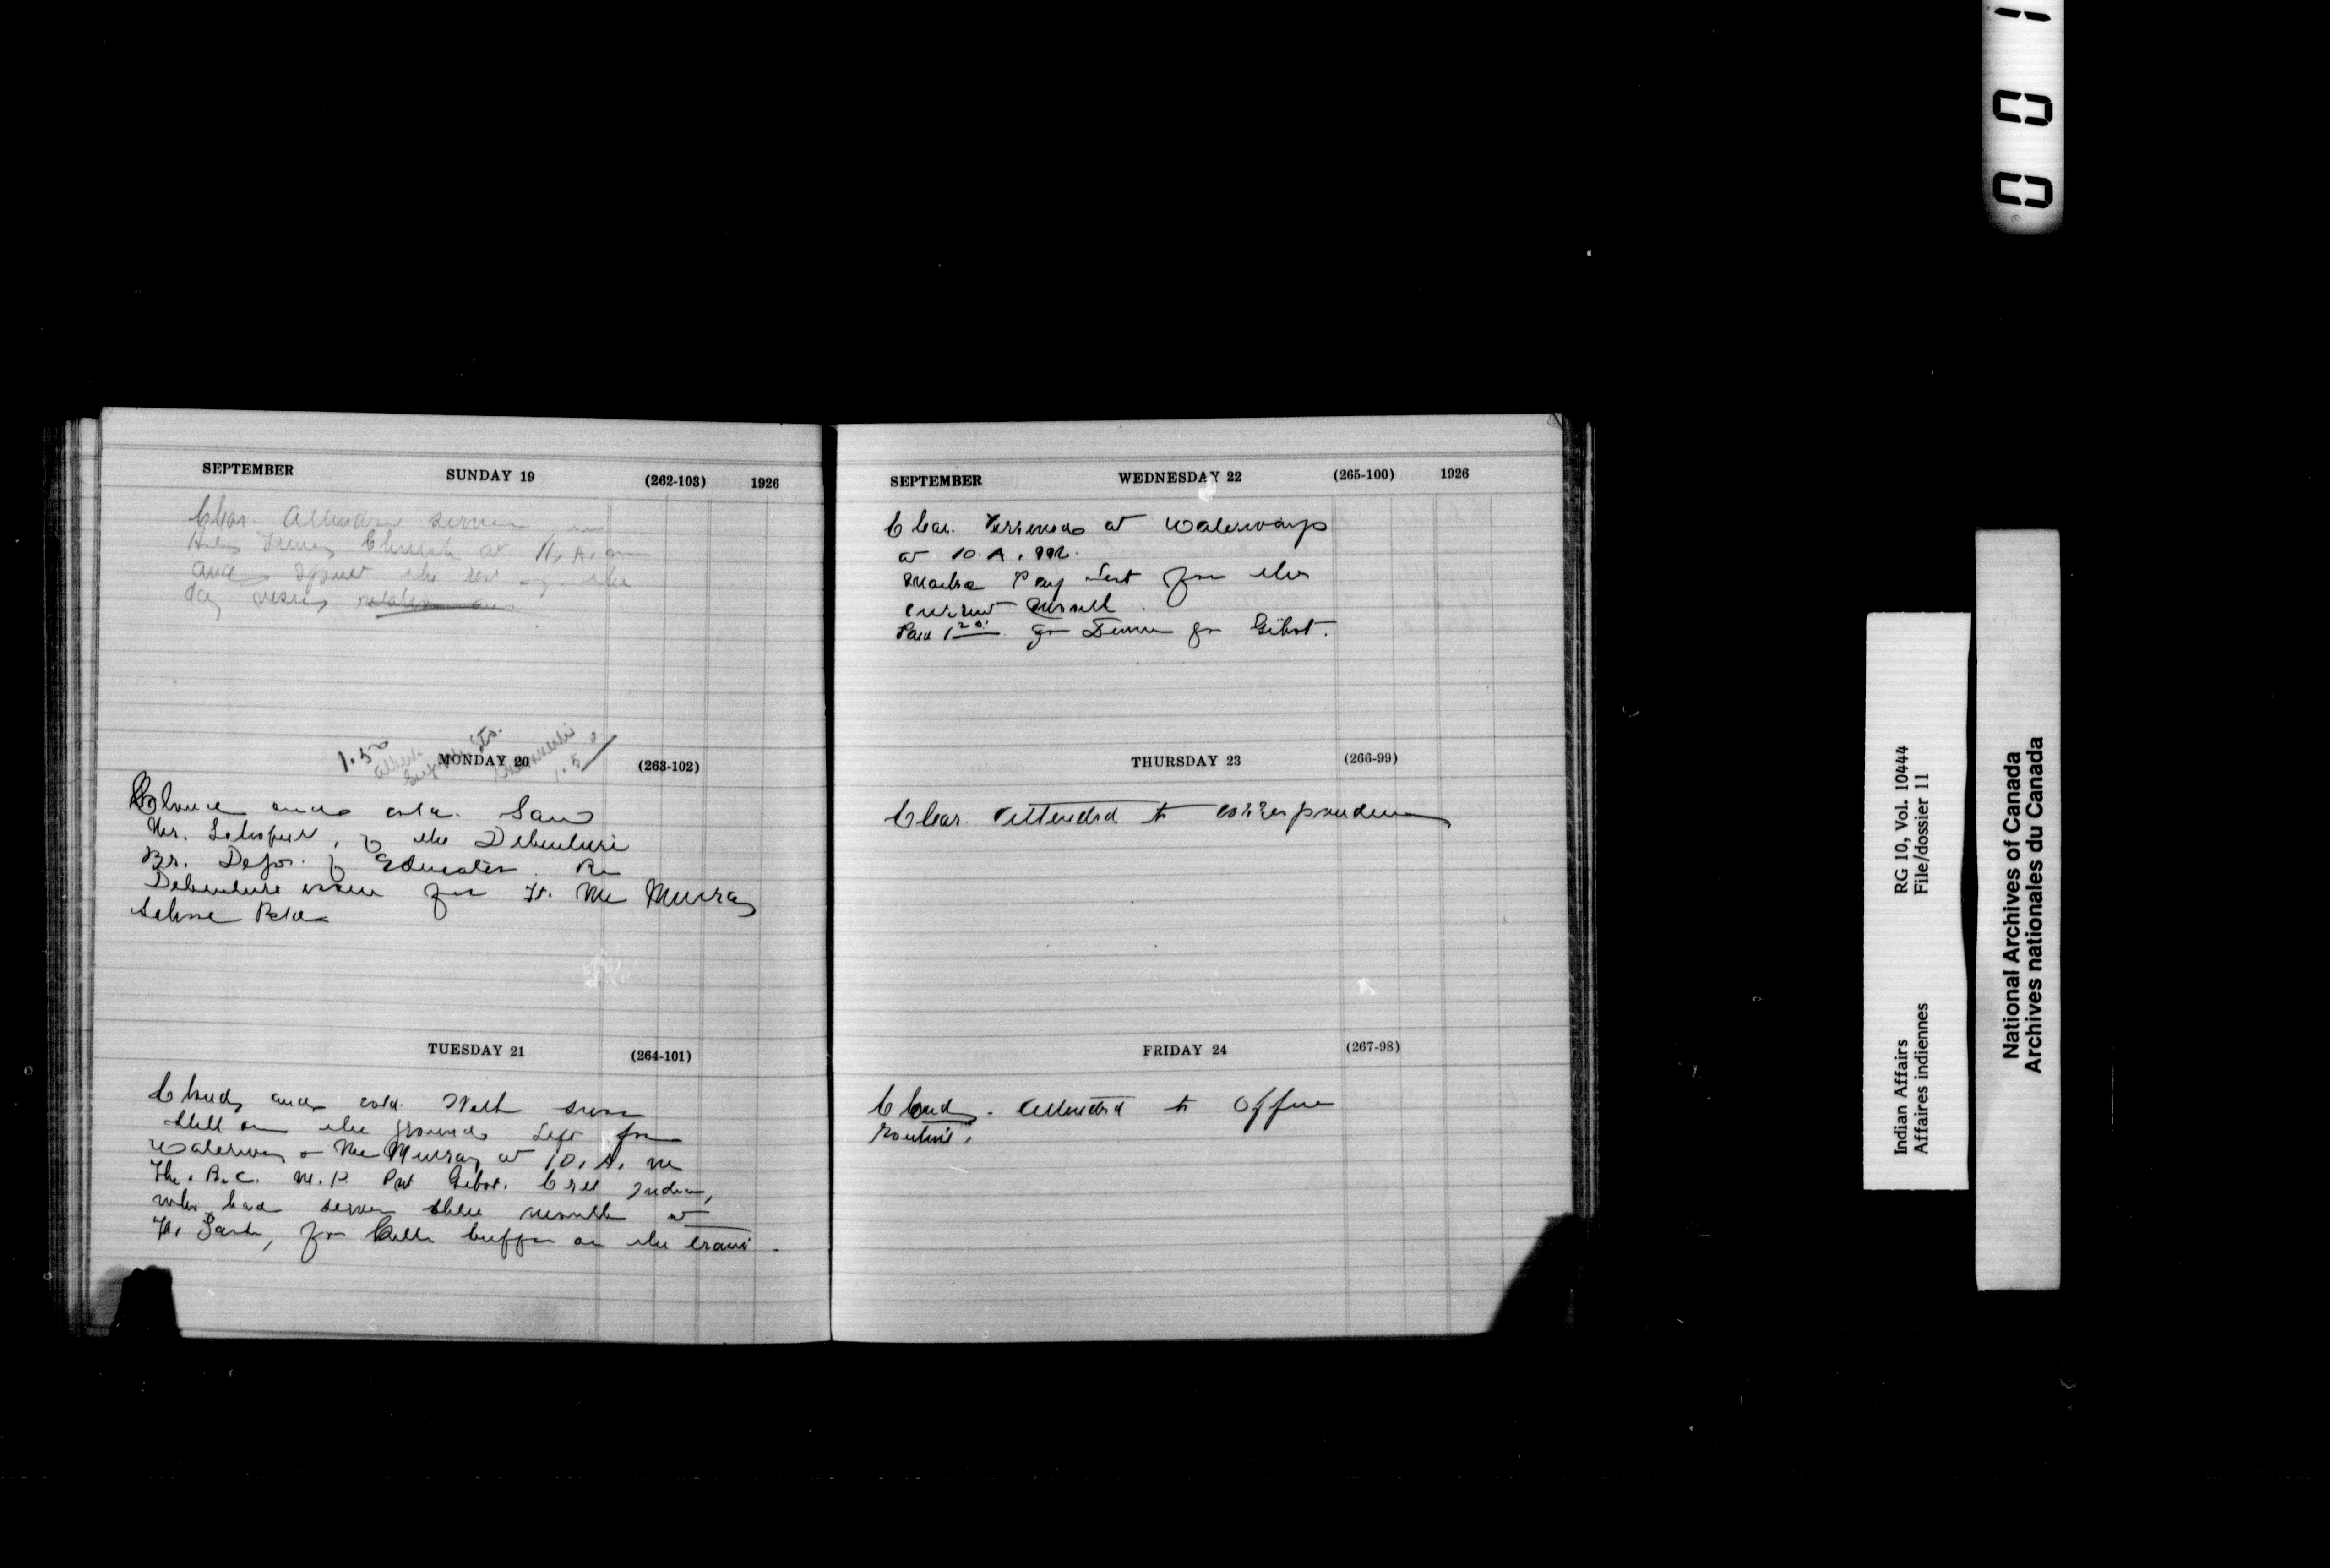 SEPTEMBER SUNDAY 19 (262-103) 1926
Clear. Attended service in
Church at 11. A. m
and spent the rest of the
day
1.50
MONDAY 20 (263-102)
1.50
and cold. Saw
Mr. of the Debenture
Br. Dept. of Education. Re
Debenture issue for Ft. Mc Murray
School
TUESDAY 21 (264-101)
Cloudy and cold. With snow
still on the ground Left for
Waterways & Mc Murray at 10. A. m
The. R. C. M. P. Cree Indian,
who had served three months at
Ft. Sask, for buffalo on the
SEPTEMBER WEDNESDAY 22 (265-100) 1926
Clear. at Waterways
at 10. A. M.
Made Pay List for the
current month.
Paid 1 20. for Dinner for Gibot.
THURSDAY 23 (266-99)
Clear. Attended to correspondence
FRIDAY 24 (267-98)
Cloudy. Attended to Office
routine.
001
Indian Affairs RG 10, Vol. 10444
Affaires indiennes File/dossier 11
National Archives of Canada
Archives nationales du Canada